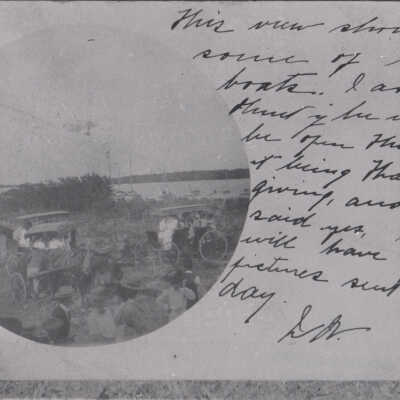 This view show
some of
boats. I as
be
be open Th
it being Tha
giving, and
said yes,
will have
pictures sent
day.